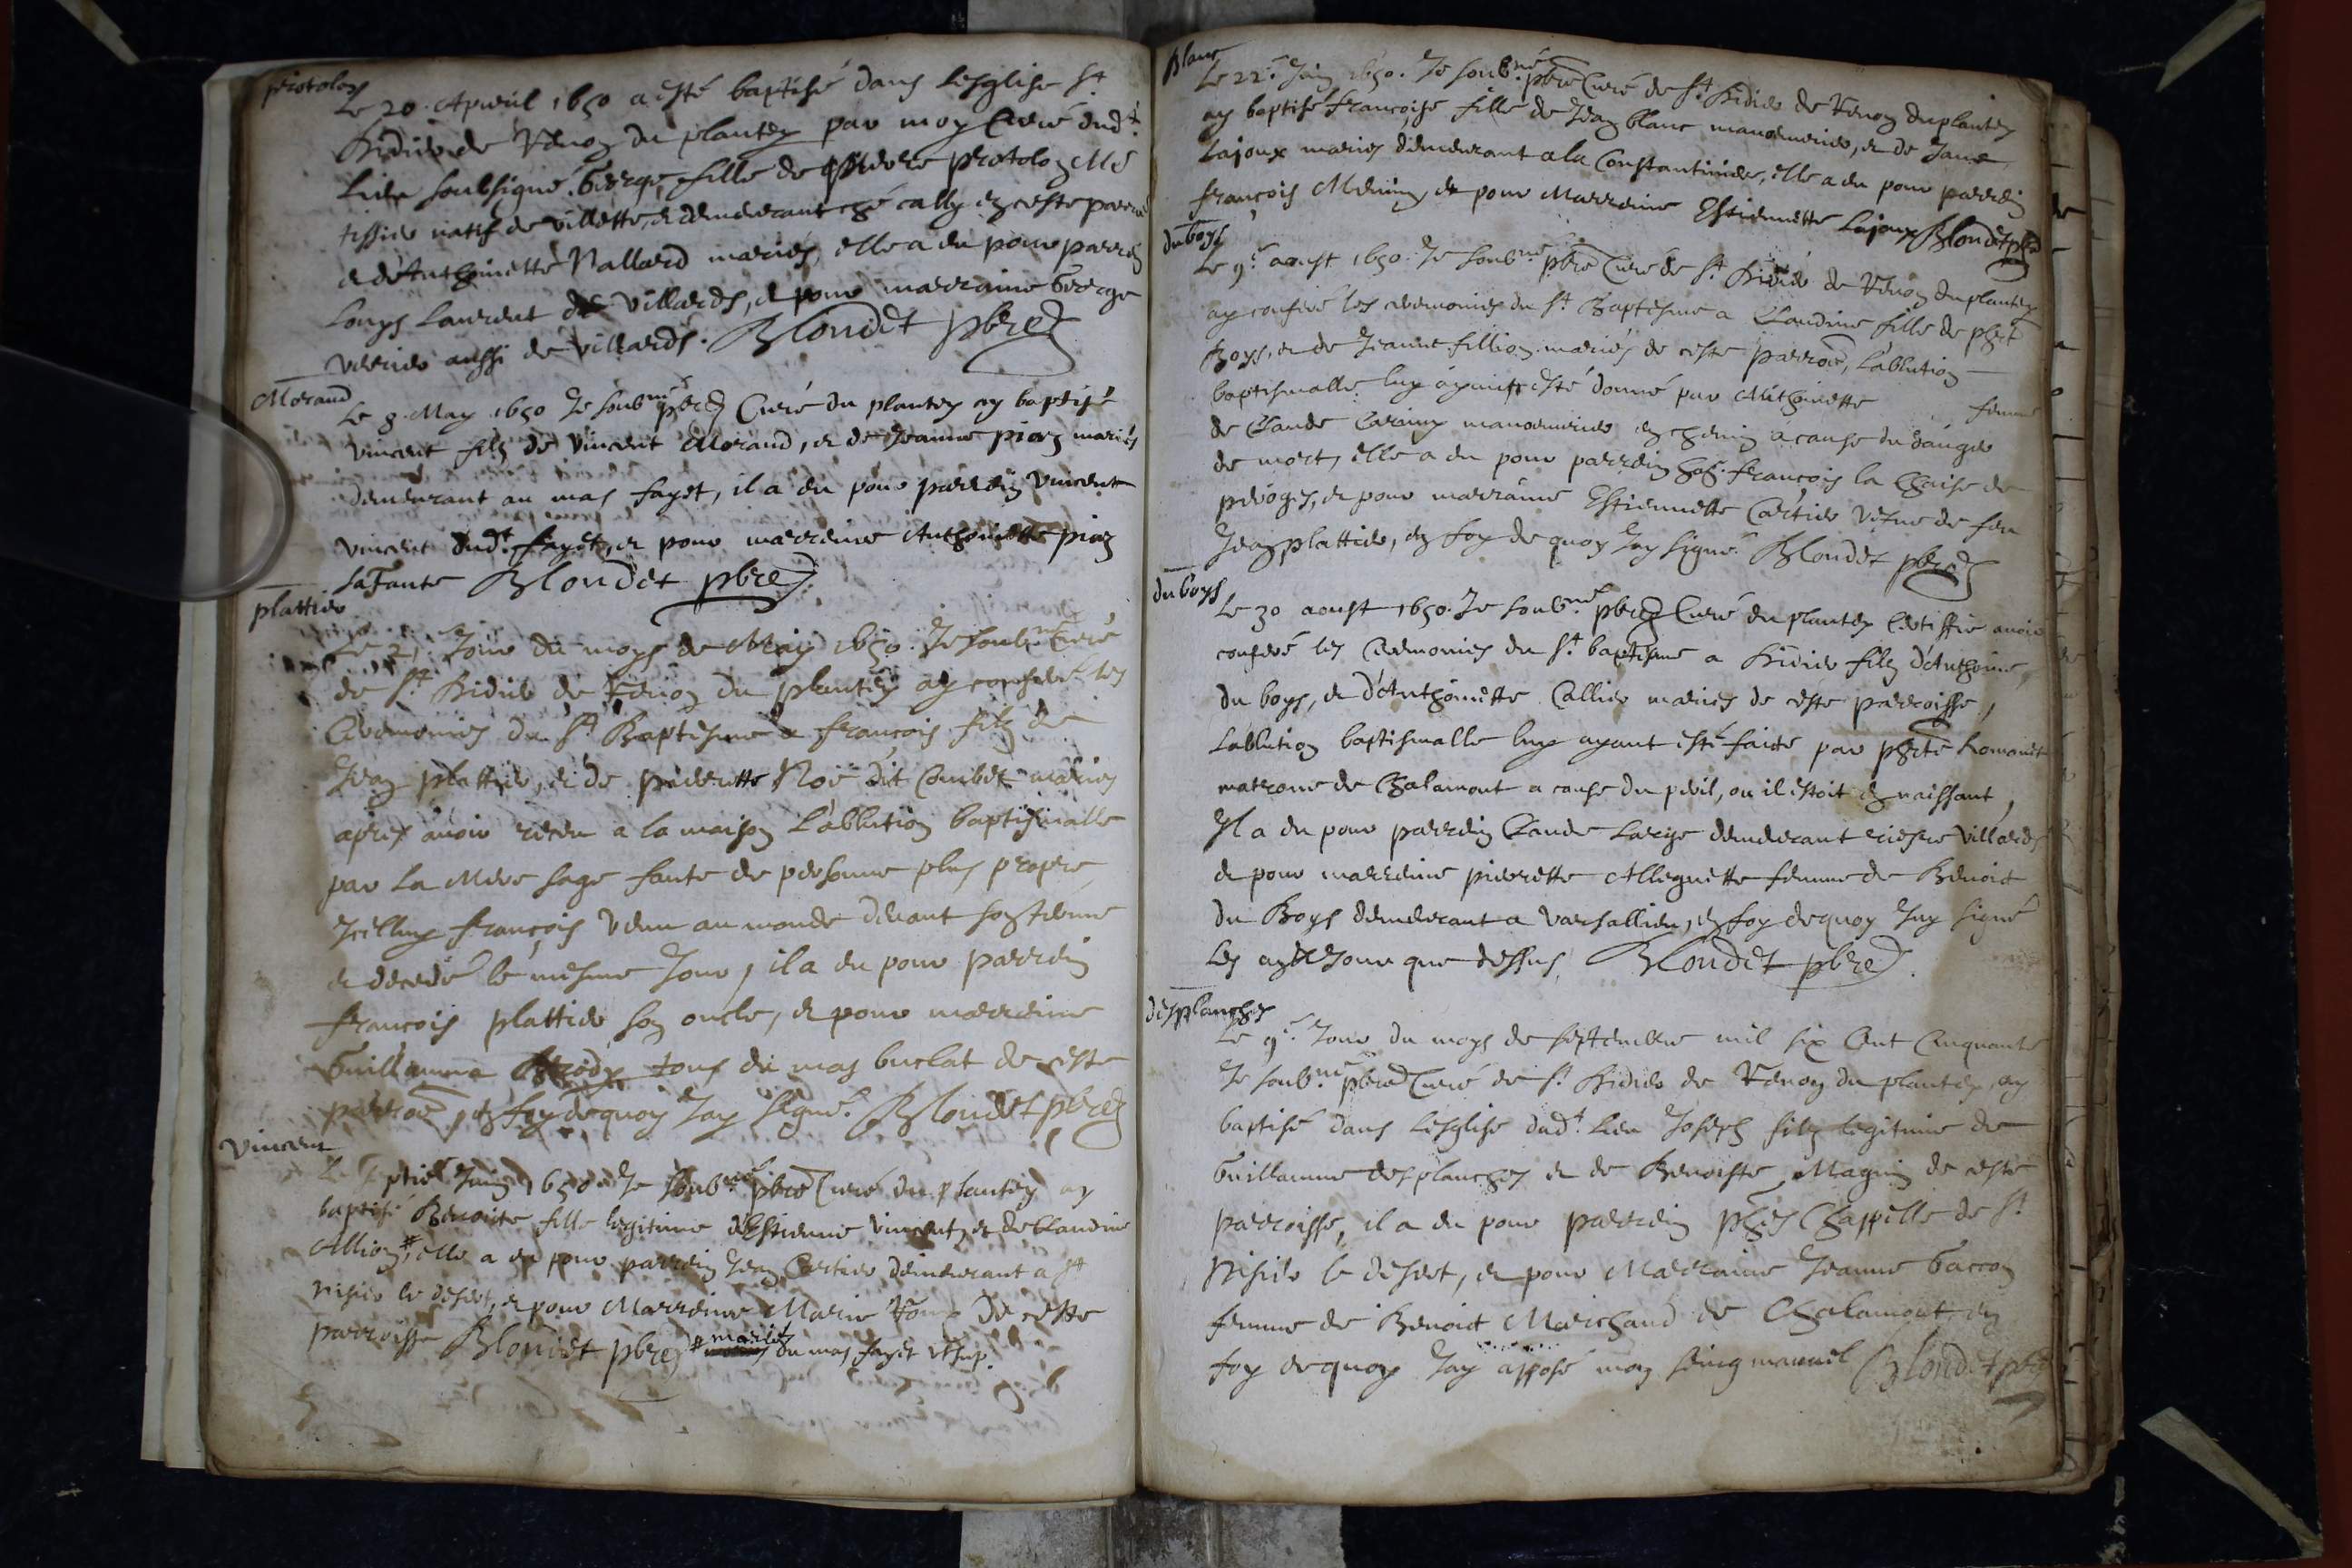 Le 20. Apvril 1650 a esté baptisé dans lesglise St
de Renon du plantey par moy Curé dudt
lieu soubsigné. George, fille de protolon
tissier natif de villette, et demeurant cally en ceste parro
et d'Anthoinette Nallard mariés, elle a eu pour parrein
Louys Laurent de villards, et pour marraine George
aussi de villards. Blondet pbre
Morand
Le 8. May 1650 Je soubné pbre Curé du plantey ay baptisé
vincent filz de vincent Morand, et de Jeanne pion mariés
demeurant au mas fayet, il a eu pour parrein vincent
vincent dudt fayet, et pour marreine Anthoinette pion
sa Tante Blondet pbre
plattier
Le 21e Jour du moys de May 1650. Je soubné Curé
de St de Renon du plantey ay conferé les
Ceremonies du St Baptesme a françois filz de
Jean plattier, et de pierrette Noé dit Combet mariés
apres avoir receu a la maison L'ablution baptismalle
par La Mere sage faute de personne plus propre
Icelluy françois venu au monde devant son terme
et decedé le mesme Jour, il a eu pour parrein
françois plattier son oncle, et pour marreine
Guillauma tous du mas buclat de ceste
parroe, en foy dequoy Jay signé. Blondet pbre
Vincent
Le Juin 1650. Je soubné pbre Curé du plantey ay
baptisé Benoite fille legitime d'Estienne vincent, et de Claudine
Allion #, elle a eu pour parrein Jean Cartier demeurant a St
nisier le desert, et pour Marreine Marie de ceste
parroisse Blondet pbre # mariés du mas fayet
Blanc
Le 22e Juin 1650. Je soubné pbre Curé de St de Renon du plantey
ay baptisé françoise fille de Jean blanc manoeuvrier, et de Jane
Lajoux mariés demeurant a la Constantinière, elle a eu pour parrein
françois et pour Marreine Estiennette Lajoux Blondet pbre
du boys
Le 9e aoust 1650. Je soubné pbre Curé de St de Renon du plantey
ay conferé les ceremonies du St Baptesme a Claudine fille de
Boys, et de Jeanne fillion mariés de ceste parroe, L'ablution
baptismalle luy ayant esté donné par Anthoinette femme
de Claude manoeuvrier en chemin a cause du danger
de mort, elle a eu pour parrein françois la Chaise de
peroges, et pour marraine Estiennette Cartier vefve de feu
Jean plattier, en foy de quoy Jay signé. Blondet pbre
du boys
Le 30 aoust 1650. Je soubné pbre Curé du plantey Certiffie avoir
conferé les Ceremonies du St baptesme a filz d'Anthoine
du boys, et d'Anthoinette Callier mariés de ceste parroisse,
L'ablution baptismalle luy ayant esté faicte par
matrone de Chalamont a cause du peril, ou il estoit en naissant,
Il a eu pour parrein Claude Large demeurant riesre Villards
et pour marreine pierrette Alleguette femme de Benoict
du Boys demeurant a Versallieu, en foy dequoy Jay signé
les an et Jour que dessus, Blondet pbre
desplanches
Le 9e Jour du moys de septembre mil six Cent Cinquante
Je soubné pbre Curé de St de Renon du plantey, ay
baptisé dans lesglise dudt Lieu Joseph filz legitime de
Guillaume desplanches et de Benoiste Magnin de ceste
parroisse, il a eu pour parrein Chappelle de St
Nisier le desert, et pour Marraine Jeanne Gaccon
femme de Benoict Marchand de Chalamont, en
foy dequoy Jay apposé mon seing manuel Blondet pbre